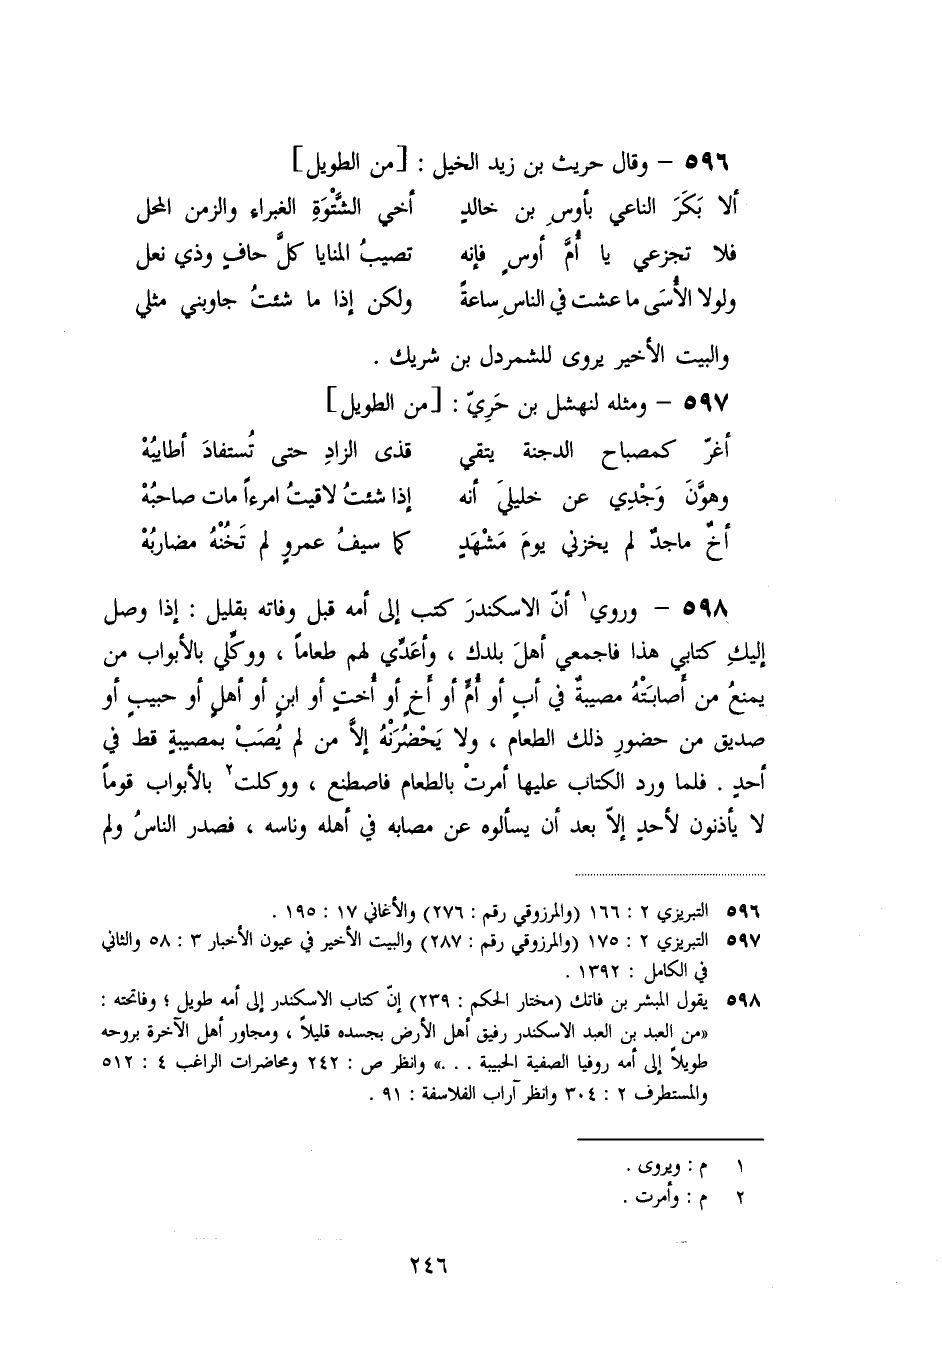 ٥٩٦ – وقال حريث بن زيد الخيل : [من الطويل]
ألا بَكَرَ الناعي بأوسِ بن خالدٍ أخي الشَّتْوَةِ الغبراء والزمن المحل
فلا تجزعي يا أُمَّ أوسٍ فإنه تصيبُ المنايا كلَّ حافٍ وذي نعل
ولولا الأُسَى ما عشت في الناسِ ساعةً ولكن إذا ما شئتُ جاوبني مثلي
والبيت الأخير يروى للشمردل بن شريك .
٥٩٧ – ومثله لنهشل بن حَرِيّ : [من الطويل]
أغرّ كمصباح الدجنة يتقي قذى الزادِ حتى تُستفادَ أطايبُهْ
وهوَّنَ وَجْدِي عن خليليَ أنه إذا شئتُ لاقيتُ امرءاً مات صاحبُهْ
أخٌ ماجدٌ لم يخزني يومَ مَشْهَدٍ كما سيفُ عمروٍ لم تَخُنْهُ مضاربُهْ
٥٩٨ – وروي١ أنّ الاسكندرَ كتب إلى أمه قبل وفاته بقليل : إذا وصل
إليكِ كتابي هذا فاجمعي أهلَ بلدك ، وأعَدِّي لهم طعاماً ، ووكِّلي بالأبواب من
يمنعُ من أَصابَتْهُ مصيبةٌ في أبٍ أو أُمٍّ أو أَخٍ أو أُختٍ أو ابنٍ أو أهلٍ أو حبيبٍ أو
صديق من حضورِ ذلك الطعام ، ولا يَحْضُرَنْهُ إلاَّ من لم يُصَبْ بمصيبةٍ قط في
أحدٍ . فلما ورد الكتاب عليها أمرتْ بالطعام فاصطنع ، ووكلت٢ بالأبواب قوماً
لا يأذنون لأحدٍ إلاّ بعد أن يسألوه عن مصابه في أهله وناسه ، فصدر الناسُ ولم
٥٩٦ التبريزي ٢ : ١٦٦ (والمرزوقي رقم : ٢٧٦) والأغاني ١٧ : ١٩٥ .
٥٩٧ التبريزي ٢ : ١٧٥ (والمرزوقي رقم : ٢٨٧) والبيت الأخير في عيون الأخبار ٣ : ٥٨ والثاني
في الكامل : ١٣٩٢ .
٥٩٨ يقول المبشر بن فاتك (مختار الحكم : ٢٣٩) إنّ كتاب الاسكندر إلى أمه طويل ؛ وفاتحته :
«من العبد بن العبد الاسكندر رفيق أهل الأرض بجسده قليلاً ، ومجاور أهل الآخرة بروحه
طويلاً إلى أمه روفيا الصفية الحبيبة . . .» وانظر ص : ٢٤٢ ومحاضرات الراغب ٤ : ٥١٢
والمستطرف ٢ : ٣٠٤ وانظر آراب الفلاسفة : ٩١ .
١ م : ويروى .
٢ م : وأمرت .
٢٤٦